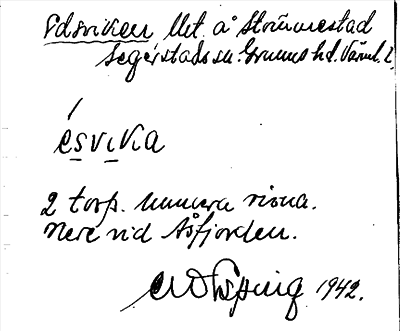 Edsviken, lht. å Strömmestad
Segerstads sn. Grums hd. Värml. l.
ésvika
2 torp. numera rivna.
Nere vid Åsfjorden.
1942.